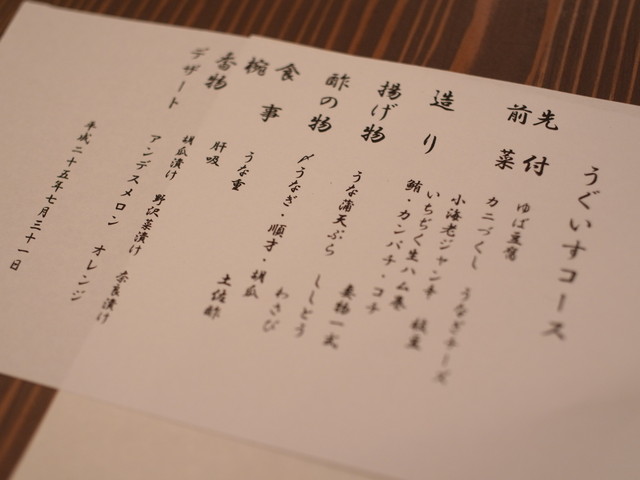 うぐいすコース
先付 ゆば豆腐
前菜 カニづくし うなぎチーズ
小海老ジャンチ 枝豆
いちぢく生ハム巻
造り 鮪・カンパチ・コチ
妻物一式
揚げ物 うな蒲天ぷら ししとう
わさび
酢の物 〆うなぎ・順才・胡瓜
土佐酢
食事 うな重
椀 肝吸
香物 胡瓜漬け 野沢菜漬け 奈良漬け
デザート アンデスメロン オレンジ
平成二十五年七月三十一日